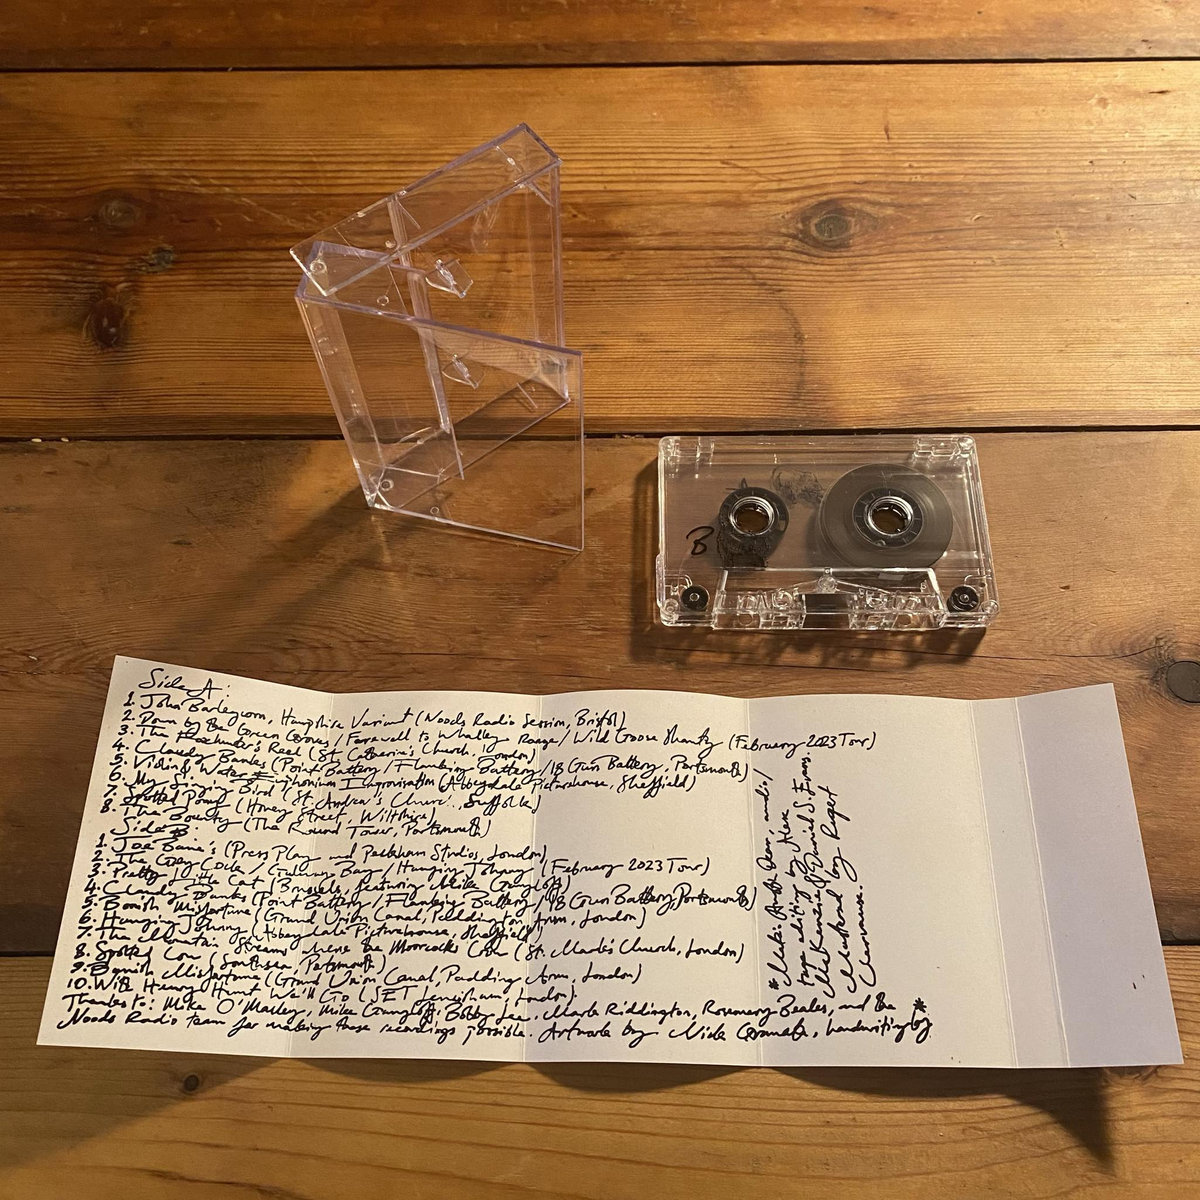 B
Side A:
1. John Barleycorn, Hampshire Variant (Noods Radio Session, Bristol)
2. Down by the Green Groves / Farewell to Whalley Range / Wild Goose Shanty (February 2023 Tour)
3. The Foxhunter's Reel (St Catherine's Church, London)
4. Cloudy Banks (Point Battery / Flanking Battery / 18 Gun Battery, Portsmouth)
5. Violin & Water Euphonium Improvisation (Abbeydale Picturehouse, Sheffield)
6. My Singing Bird (St. Andrew's Church, Suffolk)
7. Spotted Cow (Honey Street, Wiltshire)
8. The Bounty (The Round Tower, Portsmouth)
Side B:
1. Joe Bane's (Press Play and Peckham Studios, London)
2. The Grey Cock / Galway Bay / Hanging Johnny (February 2023 Tour)
3. Pretty Little Cat (Brussels, featuring Mike
4. Cloudy Banks (Point Battery / Flanking Battery / 18 Gun Battery, Portsmouth)
5. Banish Misfortune (Grand Union Canal, Paddington Arm, London)
6. Hanging Johnny (Abbeydale Picturehouse, Sheffield)
7. The Mountain Streams Where the Moorcocks Crow (St. Mark's Church, London)
8. Spotted Cow (Southsea, Portsmouth)
9. Banish Misfortune (Grand Union Canal, Padding Arm, London)
10. With Henry Hunt We'll Go (SET Lewisham, London).
Thanks to: Mike O'Malley, Mike Bobby Lee, Mark Riddington, Rosemary Beales, and the
Noods Radio team for making these recordings possible. Artwork by Nick handwriting by *
* audio /
tape editing by
Daniel S. Evans.
by Rupert